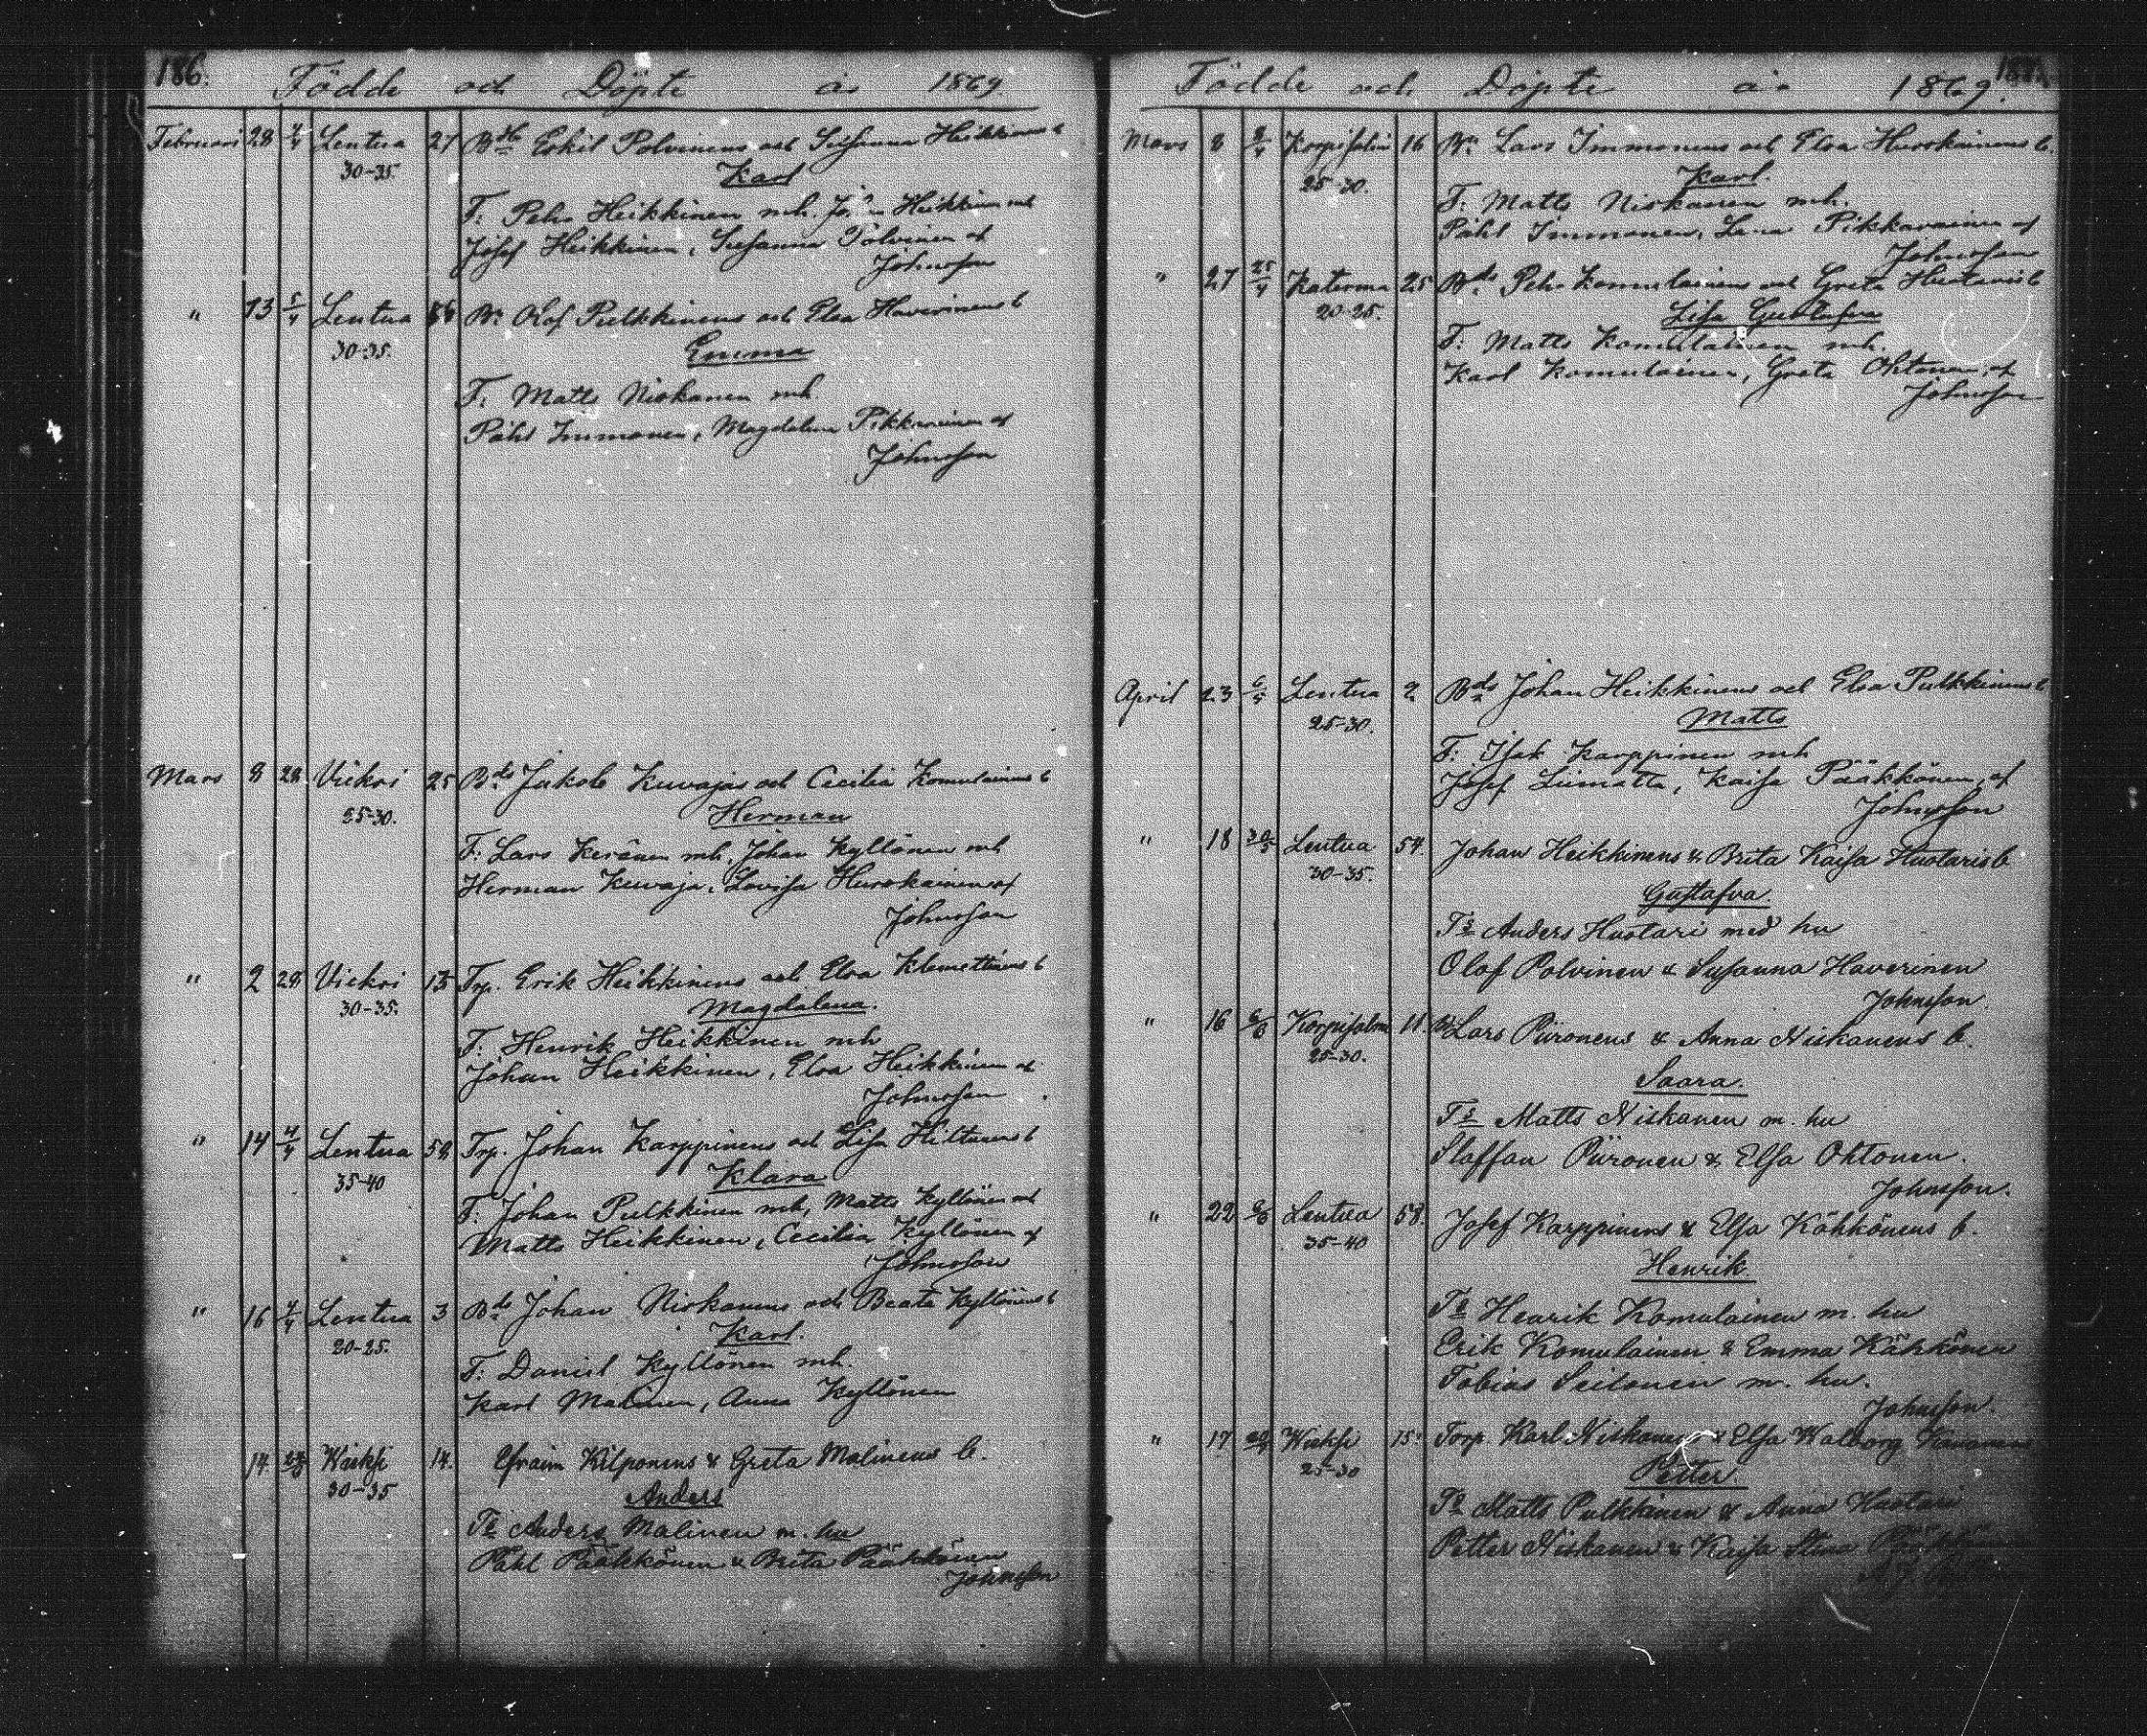 186.
Födde och Döpte år 1869.
Februari 28 4/4 Lentua 27 Bds Eskil Polvinens och Susanna Heikkinens b
30-35 Karl
F: Pehr Heikkinen mh. Heikkinen och
Josef Heikkinen, Susanna Polvinen af
Johnsson
" 13 5/4 Lentua Bn Olof Pulkkinens och Elsa Haverinens b
30-35. Emma
F: Matts Niskanen mh.
Påhl Immonen, Magdalena Pikkarainen af
Johnsson
Mars 8 28 Viekri 25 Bds Jakob Kuvajas och Cecilia Komulainens b
25-30. Herman
F: Lars Keränen mh, Johan Kyllönen mh
Herman Kuvaja, Lovisa Hurskainen af
Johnsson
" 2 28 Viekri 15 Trp. Erik Heikkinens och Elsa Klemettinens b
30-35. Magdalena.
F: Henrik Heikkinen mh
Johan Heikkinen, Elsa Heikkinen af
Johnsson
" 14 4/4 Lentua 58 Trp. Johan Karppinens och Lisa Hiltunens b
35-40 Klara
F: Johan Pulkkinen mh, Matts Kyllönen och
Matts Heikkinen, Cecilia Kyllönen af
Johnsson
" 16 4/4 Lentua 3 Bds Johan Niskanens och Beata Kyllönens b
20-25. Karl.
F: Daniel Kyllönen mh.
Karl Malinen, Anna Kyllönen
14 Wieksi 14. Efraim Kilponens & Greta Malinens b.
30-35 Anders
Fs Anders Malinen m. hu
Påhl Pääkkönen & Brita Pääkkönen
Johnsson
187.
Födde och Döpte år 1869.
Mars 8 8/4 Korpisalmi 16 Bn Lars Immonens och Elsa Hurskainens b.
25-30. Karl.
F: Matts Niskanen mh.
Påhl Immonen, Lena Pikkarainen af
Johnsson
" 27 25/4 Katerma 25 Bds Pehr Komulainens och Greta Huotaris b
20-25. Lisa Gustafva
F: Matts Komulainen mh.
Karl Komulainen, Greta Ohtonen, af
Johnsson
April 23 6/5 Lentua 2 Bds Johan Heikkinens och Elsa Pulkkinens b
25-30. Matts
F: Isak Karppinen mh
Josef Liimatta, Kaisa Pääkkönen, af
Johnsson
" 18 30/5 Lentua 54. Johan Heikkinens & Brita Kaisa Huotaris b
30-35. Gustafva.
Fs Anders Huotari med hu
Olof Polvinen & Susanna Haverinen
Johnsson
" 16 6/6 Korpisalmi 11. Bd Lars Piironens & Anna Niskanens b.
25-30. Saara.
Fs Matts Niskanen m. hu
Staffan Piironen & Elsa Ohtonen.
Johnsson.
" 22 6/6 Lentua 58. Josef Karppinens & Elsa Kähkönens b.
35-40 Henrik
Fs Henrik Komulainen m. hu
Erik Komulainen & Emma Kähkönen
Tobias Seilonen m. hu.
Johnsson.
" 17 Wieksi 15. Torp. Karl Niskanens & Elsa Walborg
25-30 Petter.
Fs Matts Pulkkinen & Anna Huotari
Petter Niskanen & Kaisa Stina